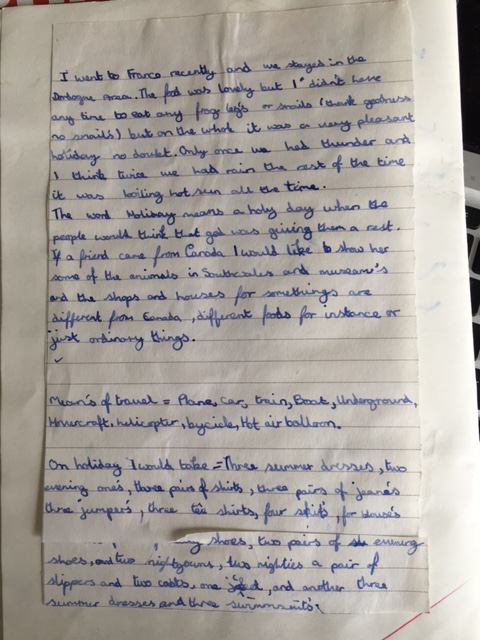 I went to France recently and we stayed in the
Dordogne area. The food was lovely but I didn't have
any time to eat any frog legs or snails (thank goodness
no snails!) but on the whole it was a very pleasant
holiday no doubt. Only once we had thunder and
I think twice we had rain the rest of the time
it was boiling hot sun all the time.
The word Holiday means a holy day when the
people would think that god was giving them a rest.
If a friend came from Canada I would like to show her
some of the animals in Southscales and museams's
and the shops and houses for somethings are
different from Canada, different foods for instance or
just ordinary things.
Mean's of travel = Plane, car, train, Boat, Underground,
Hovercraft, helicopter, bycicle, Hot air balloon.
On holiday I would take = Three summer dresses, two
evening one's, three pairs of shirts, three pairs of jeans's
three jumpers, three tee shirts, four for blouse's
shoes, two pairs of evening
shoes, and two nightgowns, two nighties a pair of
slippers and two coats, one and another three
summer dresses and three swimmsuits.